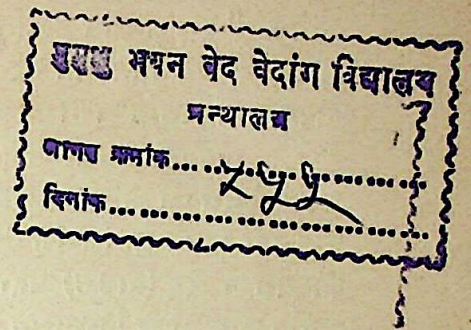 मुमुक्षु भवन वेद वेदांग विद्यालय
ग्रन्थालय
आगत क्रमांक...
दिनांक...